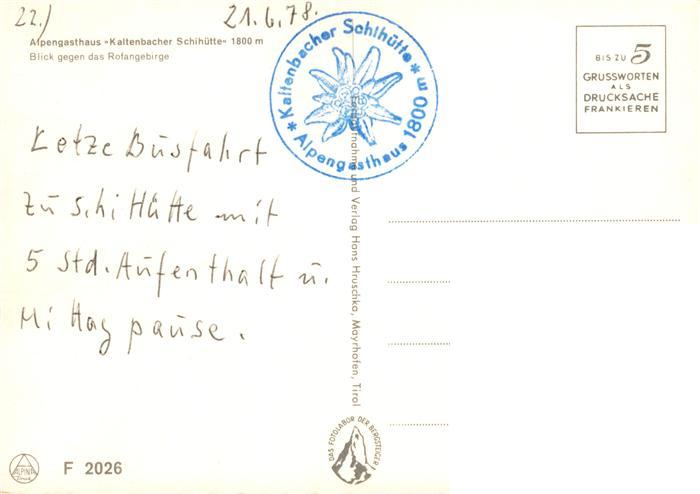 22.)
21.6.78.
Alpengasthaus »Kaltenbacher Schihütte« 1800 m
Blick gegen das Rofangebirge
* Kaltenbacher Schihütte *
Alpengasthaus 1800 m
BIS ZU 5
GRUSSWORTEN
ALS
DRUCKSACHE
FRANKIEREN
Letze Busfahrt
zu SchiHütte mit
5 Std. Aufenthalt u.
Mittagpause.
und Verlag Hans Hruschka, Mayrhofen, Tirol
DAS FOTOLABOR DER BERGSTEIGER
ALPINA
F 2026